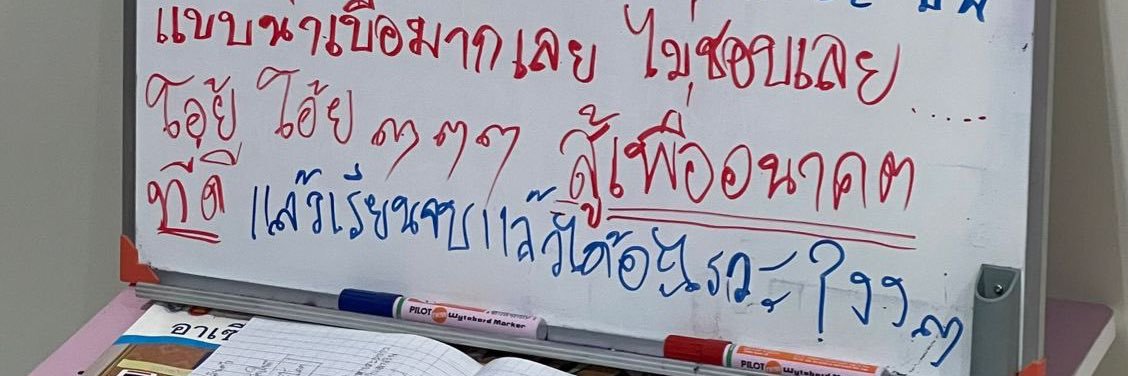 แบบน่าเบื่อมากเลย ไม่ชอบเลย .....
โอ้ย โอ้ย ๆ ๆ ๆ สู้เพื่ออนาคต
ที่ดี แล้วเรียนจบแล้วได้อะไรวะ งง ๆ
PILOT Wytebord Marker
PILOT Wytebord Marker
อาเซี